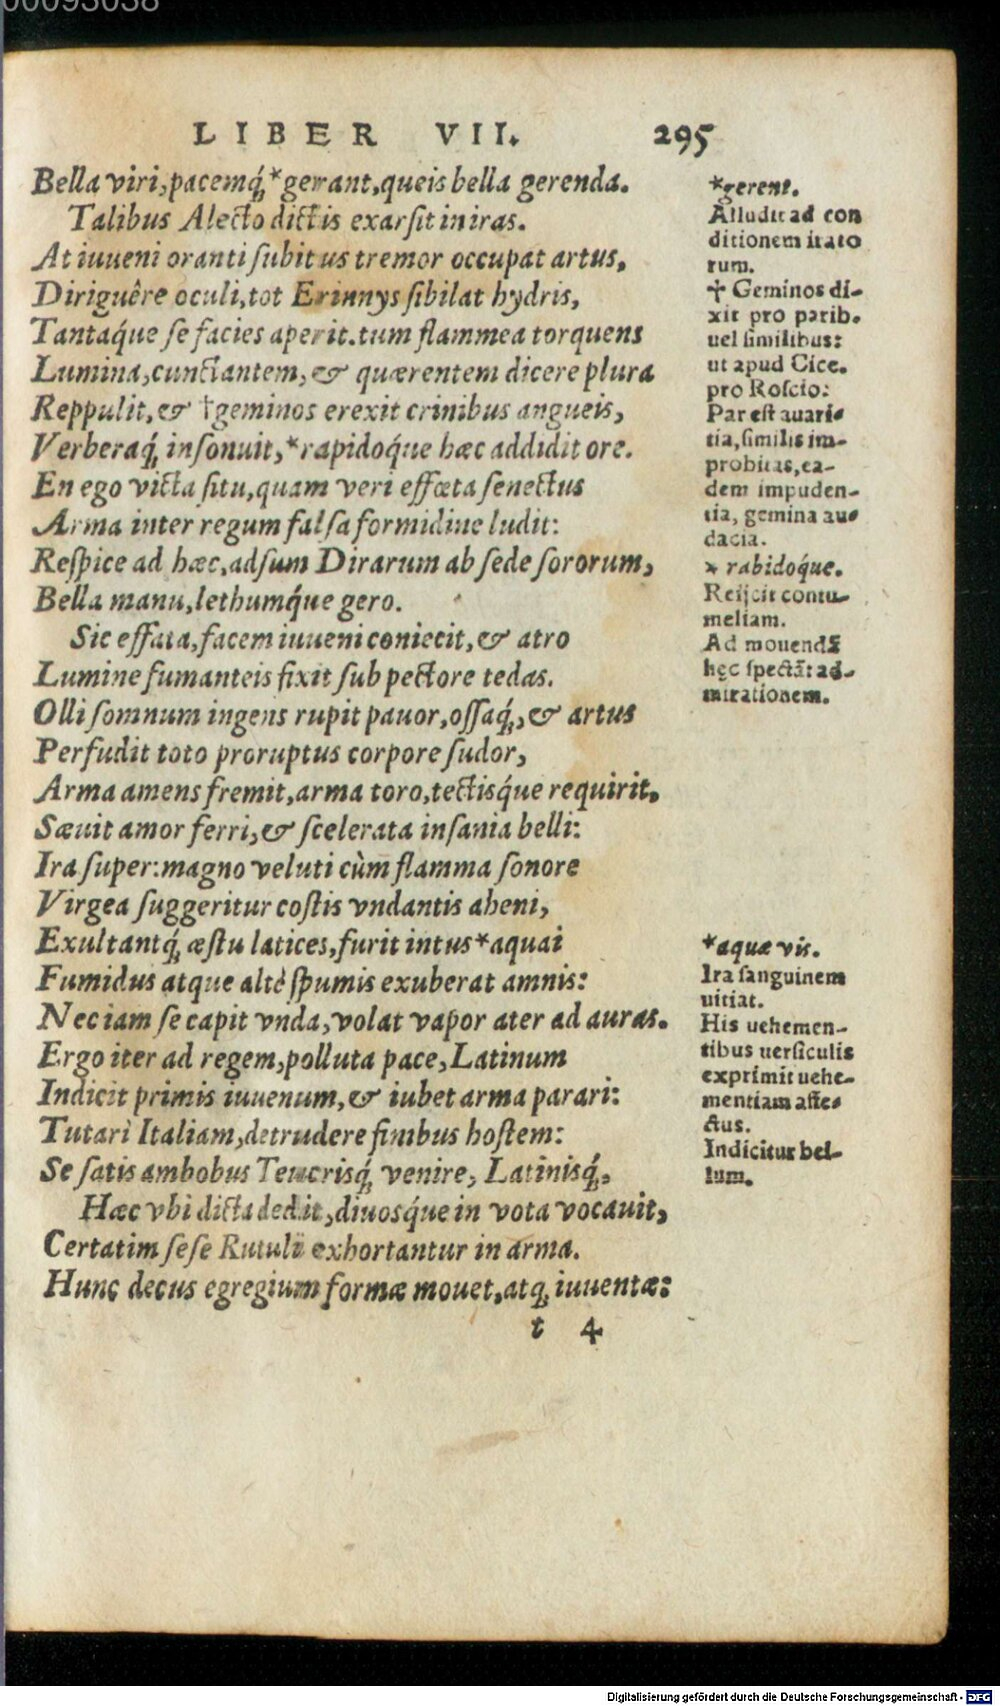 00093038
LIBER VII. 295
Bella viri, pacemq́; *gerant, queis bella gerenda.
Talibus Alecto dictis exarsit in iras.
At iuueni oranti subitus tremor occupat artus,
Diriguêre oculi, tot Erinnys sibilat hydris,
Tantaq́ue se facies aperit. tum flammea torquens
Lumina, cunctantem, & quærentem dicere plura
Reppulit, & †geminos erexit crinibus angueis,
Verberaq́; insonuit, *rapidoq́ue hæc addidit ore.
En ego victa situ, quam veri effœta senectus
Arma inter regum falsa formidine ludit:
Respice ad hæc, adsum Dirarum ab sede sororum,
Bella manu, lethumq́ue gero.
Sic effata, facem iuueni coniecit, & atro
Lumine fumanteis fixit sub pectore tedas.
Olli somnum ingens rupit pauor, ossaq́;, & artus
Perfudit toto proruptus corpore sudor,
Arma amens fremit, arma toro, tectisq́ue requirit.
Sæuit amor ferri, & scelerata insania belli:
Ira super: magno veluti cùm flamma sonore
Virgea suggeritur costis vndantis aheni,
Exultantq́; æstu latices, furit intus *aquai
Fumidus atque altè spumis exuberat amnis:
Nec iam se capit vnda, volat vapor ater ad auras.
Ergo iter ad regem, polluta pace, Latinum
Indicit primis iuuenum, & iubet arma parari:
Tutari Italiam, detrudere finibus hostem:
Se satis ambobus Teucrisq́; venire, Latinisq́;,
Hæc vbi dicta dedit, diuosq́ue in vota vocauit,
Certatim sese Rutuli exhortantur in arma.
Hunc decus egregium formæ mouet, atq; iuuentæ:
t 4
*gerent.
Alludit ad con
ditionem irato
rum.
† Geminos di-
xit pro parib.
uel similibus:
ut apud Cice.
pro Roscio:
Par est auari-
tia, similis im-
probitas, ea-
dem impuden-
tia, gemina au-
dacia.
* rabidoq́ue.
Reijcit contu-
meliam.
Ad mouendã
hęc spectãt ad-
mirationem.
*aquæ vis.
Ira sanguinem
uitiat.
His uehemen-
tibus uersiculis
exprimit uehe-
mentiam affe-
ctus.
Indicitur bel-
lum.
Digitalisierung gefördert durch die Deutsche Forschungsgemeinschaft - DFG